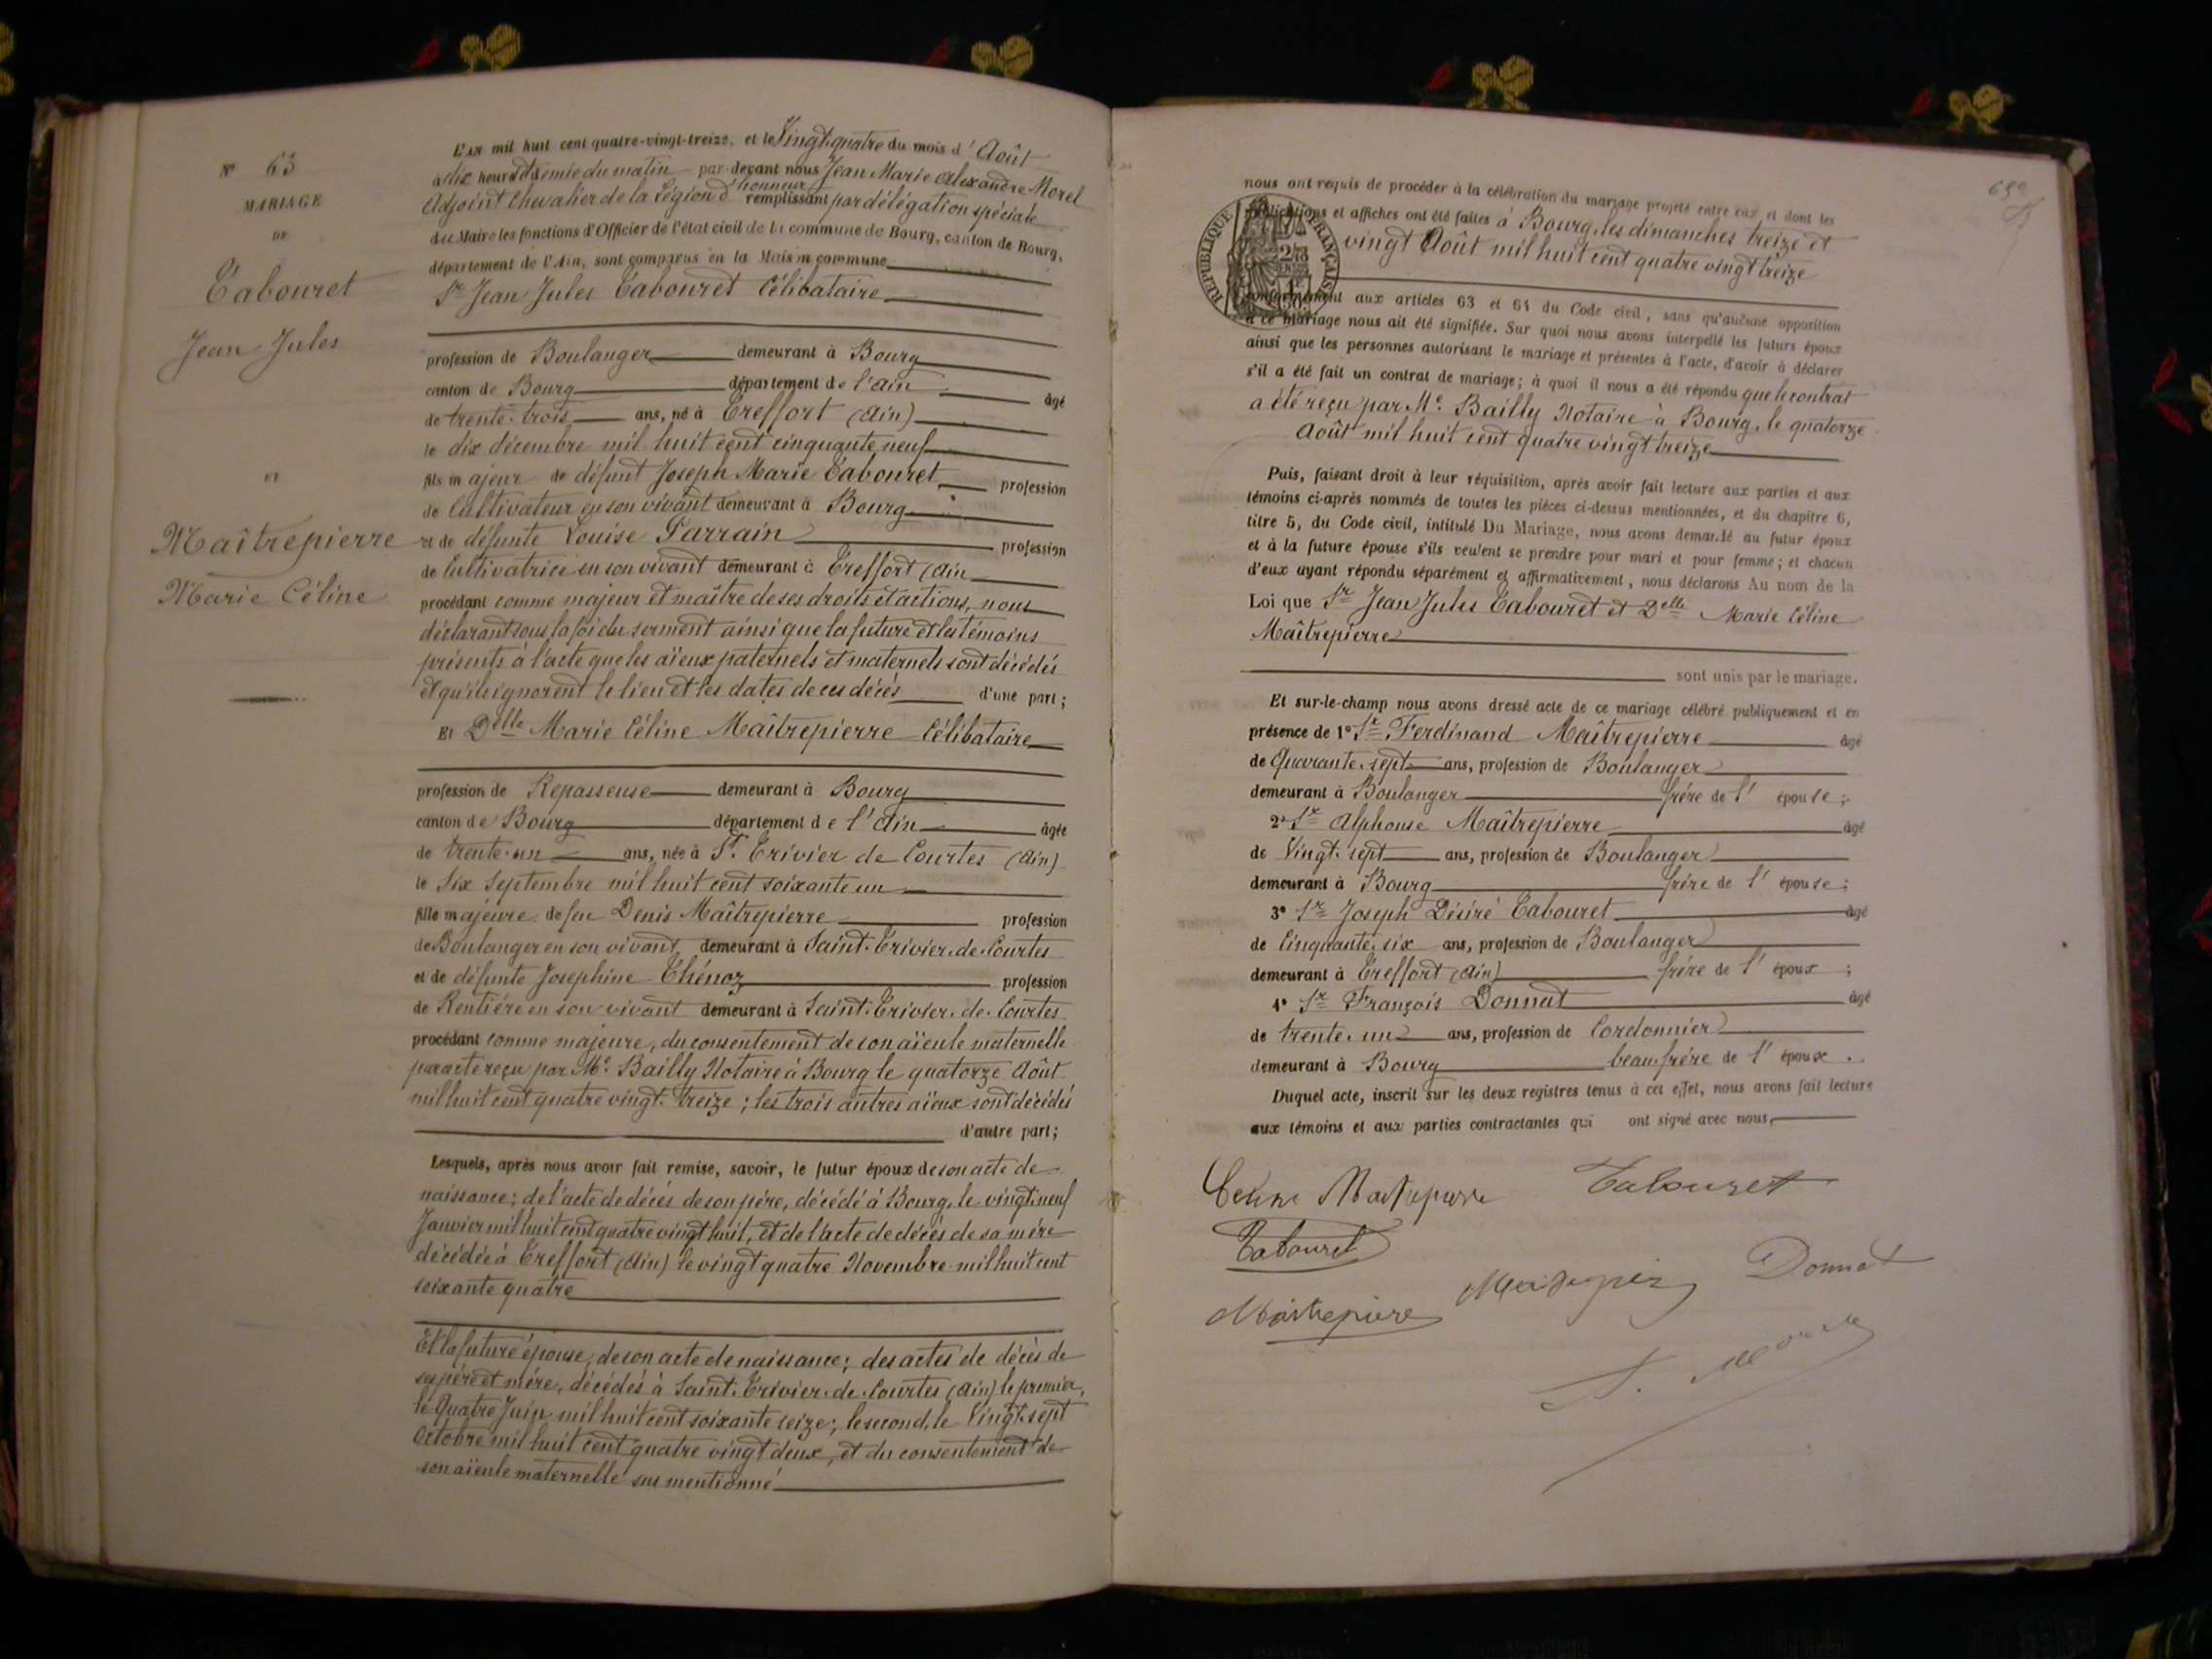 N° 63
MARIAGE
DE
Tabouret
Jean Jules
ET
Maîtrepierre
Marie Céline
L'AN mil huit cent quatre-vingt-treize, et le Vingt quatre du mois d'Août
à dix heures & demie du matin par-devant nous Jean Marie Alexandre Morel
Adjoint Chevalier de la Légion d'honneur remplissant par délégation spéciale
du Maire les fonctions d'Officier de l'état civil de la commune de Bourg, canton de Bourg,
département de l'Ain, sont comparus en la Maison commune
Sr Jean Jules Tabouret Célibataire
profession de Boulanger demeurant à Bourg
canton de Bourg département de l'Ain âgé
de trente-trois ans, né à Treffort (Ain)
le dix décembre mil huit cent cinquante neuf
fils majeur de défunt Joseph Marie Tabouret profession
de Cultivateur en son vivant demeurant à Bourg
et de défunte Louise Parrain profession
de Cultivatrice en son vivant demeurant à Treffort (Ain
procédant comme majeur et maître de ses droits et actions, nous
déclarant sous la foi du serment ainsi que la future et les témoins
présents à l'acte que les aïeux paternels et maternels sont décédés
et qu'ils ignorent le lieu et les dates de ces décès d'une part;
Et Delle Marie Céline Maîtrepierre Célibataire
profession de Repasseuse demeurant à Bourg
canton de Bourg département de l'Ain âgée
de trente-un ans, née à St. Trivier de Courtes (Ain)
le Six Septembre mil huit cent soixante un
fille majeure de feu Denis Maîtrepierre profession
de Boulanger en son vivant, demeurant à Saint-Trivier-de-Courtes
et de défunte Josephine Thénoz profession
de Rentière en son vivant demeurant à Saint-Trivier-de-Courtes
procédant comme majeure, du consentement de son aïeule maternelle
par acte reçu par Me. Bailly Notaire à Bourg le quatorze Août
mil huit cent quatre vingt-treize; les trois autres aïeux sont décédés
d'autre part;
Lesquels, après nous avoir fait remise, savoir, le futur époux de son acte de
naissance; de l'acte de décès de son père, décédé à Bourg, le vingt neuf
Janvier mil huit cent quatre vingt huit, et de l'acte de décès de sa mère
décédée à Treffort (Ain) le vingt quatre Novembre mil huit cent
soixante quatre
Et la future épouse, de son acte de naissance; des actes de décès de
ses père et mère, décédés à Saint-Trivier-de-Courtes (Ain) le premier,
le Quatre Juin mil huit cent soixante seize; le second, le Vingt-sept
Octobre mil huit cent quatre vingt deux, et du consentement de
son aïeule maternelle sus mentionné
nous ont requis de procéder à la célébration du mariage projeté entre eux et dont les
publications et affiches ont été faites à Bourg, les dimanches treize et
vingt Août mil huit cent quatre vingt treize
RÉPUBLIQUE FRANÇAISE
conformément aux articles 63 et 64 du Code civil, sans qu'aucune opposition
à ce mariage nous ait été signifiée. Sur quoi nous avons interpellé les futurs époux
ainsi que les personnes autorisant le mariage et présentes à l'acte, d'avoir à déclarer
s'il a été fait un contrat de mariage; à quoi il nous a été répondu que le contrat
a été reçu par Me. Bailly Notaire à Bourg, le quatorze
Août mil huit cent quatre vingt treize
Puis, faisant droit à leur réquisition, après avoir fait lecture aux parties et aux
témoins ci-après nommés de toutes les pièces ci-dessus mentionnées, et du chapitre 6,
titre 5, du Code civil, intitulé Du Mariage, nous avons demandé au futur époux
et à la future épouse s'ils veulent se prendre pour mari et pour femme; et chacun
d'eux ayant répondu séparément et affirmativement, nous déclarons Au nom de la
Loi que Sr Jean Jules Tabouret et Delle Marie Céline
Maîtrepierre
sont unis par le mariage.
Et sur-le-champ nous avons dressé acte de ce mariage célébré publiquement et en
présence de 1° Sr Ferdinand Maîtrepierre âgé
de Quarante-sept ans, profession de Boulanger
demeurant à Boulanger frère de l'épouse;
2° Sr Alphonse Maîtrepierre âgé
de Vingt-sept ans, profession de Boulanger
demeurant à Bourg frère de l'épouse;
3° Sr Joseph Désiré Tabouret âgé
de Cinquante-six ans, profession de Boulanger
demeurant à Treffort (Ain) frère de l'époux;
4° Sr François Donnat âgé
de trente-un ans, profession de Cordonnier
demeurant à Bourg beau-frère de l'époux.
Duquel acte, inscrit sur les deux registres tenus à cet effet, nous avons fait lecture
aux témoins et aux parties contractantes qui ont signé avec nous,
Celine Maitrepierre Tabouret
Tabouret
Maitrepierre Donnat